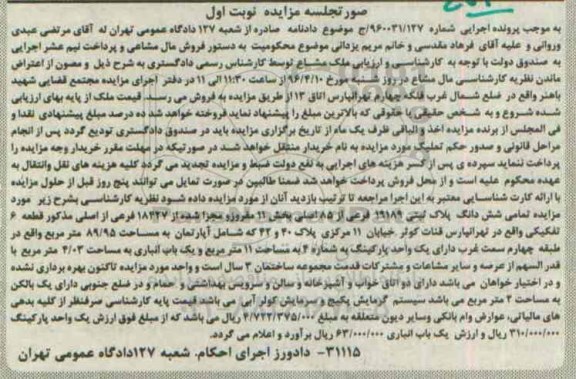 صورتجلسه مزایده نوبت اول
به موجب پرونده اجرایی شماره ۹۶۰۰۳۱/۱۲۷/ج موضوع دادنامه صادره از شعبه ۱۲۷ دادگاه عمومی تهران له آقای مرتضی عبدی
وروانی و علیه آقای فرهاد مقدسی و خانم مریم یزدانی موضوع محکومیت به دستور فروش مال مشاعی و پرداخت نیم عشر اجرایی
به صندوق دولت با توجه به کارشناسی و ارزیابی ملک مشاع توسط کارشناس رسمی دادگستری به شرح ذیل و مصون از اعتراض
ماندن نظریه کارشناسی مال مشاع در روز شنبه مورخ ۹۶/۴/۱۰ از ساعت ۱۱:۳۰ الی ۱۱ در دفتر اجرای مزایده مجتمع قضایی شهید
باهنر واقع در ضلع شمال غرب فلکه چهارم تهرانپارس اتاق ۱۳ از طریق مزایده به فروش می رسد. قیمت ملک از پایه بهای ارزیابی
شده شروع و به شخص حقیقی یا حقوقی که بالاترین مبلغ را پیشنهاد نماید فروخته خواهد شد ده درصد مبلغ پیشنهادی نقدا و
فی المجلس از برنده مزایده اخذ و الباقی ظرف یک ماه از تاریخ برگزاری مزایده باید در صندوق دادگستری تودیع گردد پس از انجام
مراحل قانونی و صدور حکم تملیک مورد مزایده به نام خریدار منتقل خواهد شد در صورتیکه در مهلت مقرر خریدار وجه مزایده را
پرداخت ننماید سپرده ی پس از کسر هزینه های اجرایی به نفع دولت ضبط و مزایده تجدید می گردد کلیه هزینه های نقل وانتقال به
عهده محکوم علیه است و از محل فروش پرداخت خواهد شد ضمنا طالبین در صورت تمایل می توانند پنج روز قبل از حلول مزایده
با ارائه کارت شناسایی معتبر به این اجرا مراجعه تا ترتیب بازدید آنان از مورد مزایده داده شود نظریه کارشناسی بشرح زیر مورد
مزایده تمامی شش دانگ پلاک ثبتی ۱۹۱۸۹ فرعی از ۸۵ اصلی بخش ۱۱ مفروزه مجزا شده از ۱۸۴۲۷ فرعی از اصلی مذکور قطعه ۶
تفکیکی واقع در تهرانپارس قنات کوثر خیابان ۱۱ مرکزی پلاک ۴۰ و ۴۲ که شامل آپارتمان به مساحت ۸۹/۹۵ متر مربع واقع در
طبقه چهارم سمت غرب دارای یک واحد پارکینگ به شماره ۴ به مساحت ۱۱ متر مربع و یک باب انباری به مساحت ۴/۰۳ متر مربع با
قدر السهم از عرصه و سایر مشاعات و مشترکات قدمت مجموعه ساختمان ۳ سال است و واحد مورد مزایده تاکنون بهره برداری نشده
و در اختیار خواهان می باشد دارای دو اتاق خواب و آشپزخانه و سالن و سرویس بهداشتی و حمام و در ضلع جنوبی دارای یک بالکن
به مساحت ۲ متر مربع می باشد سیستم گرمایش پکیج و سرمایش کولر آبی می باشد قیمت پایه کارشناسی صرفنظر از کلیه بدهی
های مالیاتی، عوارض وام بانکی وسایر دیون متعلقه به مبلغ ۴/۷۲۲/۳۷۵/۰۰۰ ریال می باشد که از مبلغ فوق ارزش یک واحد پارکینگ
۳۱۰/۰۰۰/۰۰۰ ریال و ارزش یک باب انباری ۶۳/۰۰۰/۰۰۰ ریال برآورد و اعلام می گردد.
۳۱۱۱۵- دادورز اجرای احکام، شعبه ۱۲۷دادگاه عمومی تهران